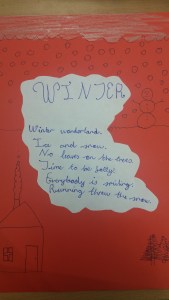 WINTER
Winter wonderland.
Ice and snow.
No leaves on the trees.
Time to be jolly!
Everybody is smiling.
Running threw the snow.